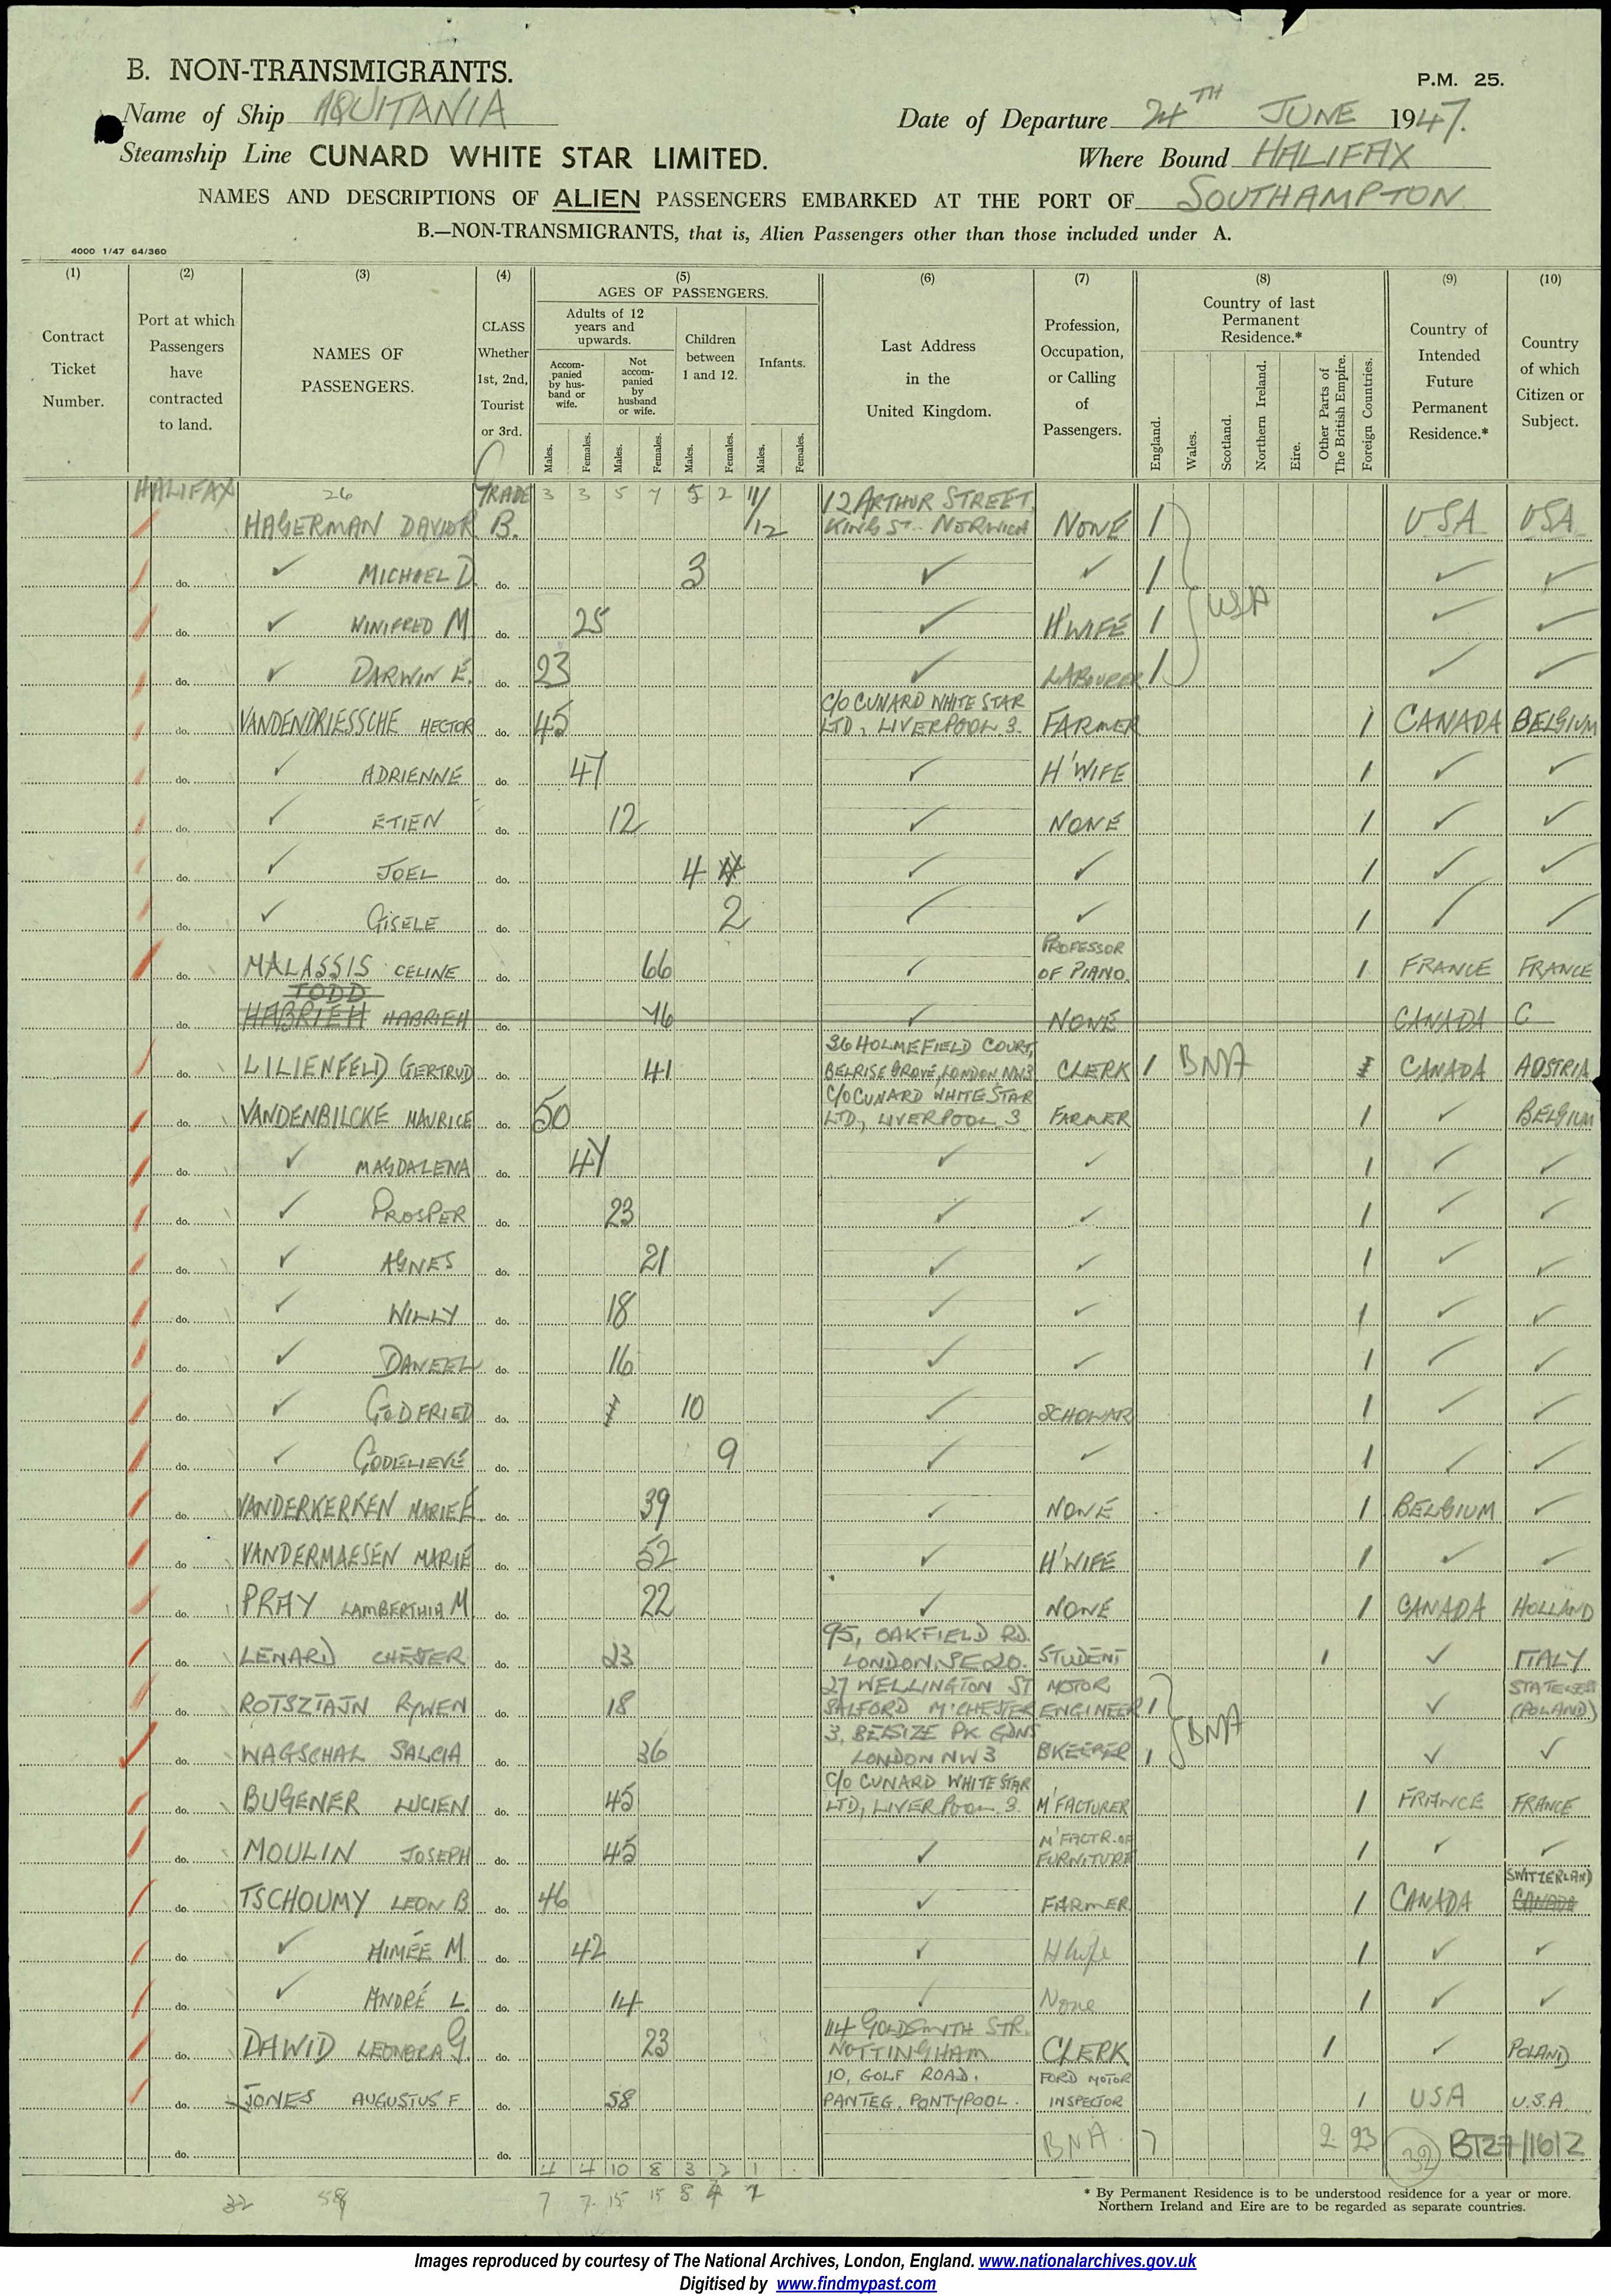 B. NON-TRANSMIGRANTS.
P.M. 25.
Name of Ship AQUITANIA
Date of Departure 24TH JUNE 1947.
Steamship Line CUNARD WHITE STAR LIMITED.
Where Bound HALIFAX
NAMES AND DESCRIPTIONS OF ALIEN PASSENGERS EMBARKED AT THE PORT OF SOUTHAMPTON
B.—NON-TRANSMIGRANTS, that is, Alien Passengers other than those included under A.
4000 1/47 64/360
(1) (2) (3) (4) (5) (6) (7) (8) (9) (10)
Contract Ticket Number.
Port at which Passengers have contracted to land.
NAMES OF PASSENGERS.
CLASS Whether 1st, 2nd, Tourist or 3rd.
AGES OF PASSENGERS.
Adults of 12 years and upwards.
Accompanied by husband or wife.
Not accompanied by husband or wife.
Children between 1 and 12.
Infants.
Males. Females. Males. Females. Males. Females. Males. Females.
Last Address in the United Kingdom.
Profession, Occupation, or Calling of Passengers.
Country of last Permanent Residence.*
England. Wales. Scotland. Northern Ireland. Eire. Other Parts of The British Empire. Foreign Countries.
Country of Intended Future Permanent Residence.*
Country of which Citizen or Subject.
HALIFAX 26 TRADE 3 3 5 7 5 2 11/12 12 ARTHUR STREET,
HAGERMAN DAVID R B. KING ST. NORWICH NONE 1 USA USA
do. ✓ MICHAEL D. do. 3 ✓ ✓ 1 ✓ ✓
USA
do. ✓ WINIFRED M do. 25 ✓ H'WIFE 1 ✓ ✓
do. ✓ DARWIN E. do. 23 ✓ LABOURER 1 ✓ ✓
C/O CUNARD WHITE STAR
do. VANDENDRIESSCHE HECTOR do. 45 LTD, LIVERPOOL 3. FARMER 1 CANADA BELGIUM
do. ✓ ADRIENNE do. 47 ✓ H'WIFE 1 ✓ ✓
do. ✓ ETIEN do. 12 ✓ NONE 1 ✓ ✓
do. ✓ JOEL do. 4 ✓ ✓ 1 ✓ ✓
do. ✓ GISELE do. 2 ✓ ✓ 1 ✓ ✓
PROFESSOR
do. MALASSIS CELINE do. 66 ✓ OF PIANO. 1 FRANCE FRANCE
TODD
do. HABRIEH HABRIEH do. 46 ✓ NONE CANADA C
36 HOLMEFIELD COURT,
do. LILIENFELD GERTRUD do. 41 BELRISE GROVE, LONDON NW3 CLERK 1 BNA CANADA AUSTRIA
C/O CUNARD WHITE STAR
do. VANDENBILCKE MAURICE do. 50 LTD., LIVERPOOL 3. FARMER 1 ✓ BELGIUM
do. ✓ MAGDALENA do. 47 ✓ ✓ 1 ✓ ✓
do. ✓ PROSPER do. 23 ✓ ✓ 1 ✓ ✓
do. ✓ AGNES do. 21 ✓ ✓ 1 ✓ ✓
do. ✓ WILLY do. 18 ✓ ✓ 1 ✓ ✓
do. ✓ DANEEL do. 16 ✓ ✓ 1 ✓ ✓
do. ✓ GODFRIED do. 10 ✓ SCHOLAR 1 ✓ ✓
do. ✓ GODELIEVE do. 9 ✓ ✓ 1 ✓ ✓
do. VANDERKERKEN MARIE E. do. 39 ✓ NONE 1 BELGIUM ✓
do VANDERMAESEN MARIE do. 52 ✓ H'WIFE 1 ✓ ✓
do. PRAY LAMBERTHIA M do. 22 ✓ NONE 1 CANADA HOLLAND
95, OAKFIELD RD.
do. LENARD CHESTER do. 23 LONDON, SE20. STUDENT 1 ✓ ITALY
27 WELLINGTON ST MOTOR STATELESS
do. ROTSZTAJN RYWEN do. 18 SALFORD M'CHESTER ENGINEER 1 ✓ (POLAND)
3, BELSIZE PK GDNS BNA
do. WAGSCHAL SALCIA do. 36 LONDON NW3 BKEEPER 1 ✓ ✓
C/O CUNARD WHITE STAR
do. BUGENER LUCIEN do. 45 LTD, LIVERPOOL 3. M'FACTURER 1 FRANCE FRANCE
M'FACTR. OF
do. MOULIN JOSEPH do. 45 ✓ FURNITURE 1 ✓ ✓
SWITZERLAND
do. TSCHOUMY LEON B do. 46 ✓ FARMER 1 CANADA CANADA
do. ✓ AIMÉE M. do. 42 ✓ H Wife 1 ✓ ✓
do. ✓ ANDRÉ L. do. 14 ✓ None 1 ✓ ✓
114 GOLDSMITH STR.
do. DAWID LEONORA G. do. 23 NOTTINGHAM CLERK 1 ✓ POLAND
10, GOLF ROAD, FORD MOTOR
do. JONES AUGUSTUS F. do. 58 PANTEG, PONTYPOOL. INSPECTOR 1 USA U.S.A.
do. do. BNA. 7 2 23 32 BT27/1612
4 4 10 8 3 2 1
32 7 7 15 15 8 4
* By Permanent Residence is to be understood residence for a year or more.
Northern Ireland and Eire are to be regarded as separate countries.
Images reproduced by courtesy of The National Archives, London, England. www.nationalarchives.gov.uk
Digitised by www.findmypast.com